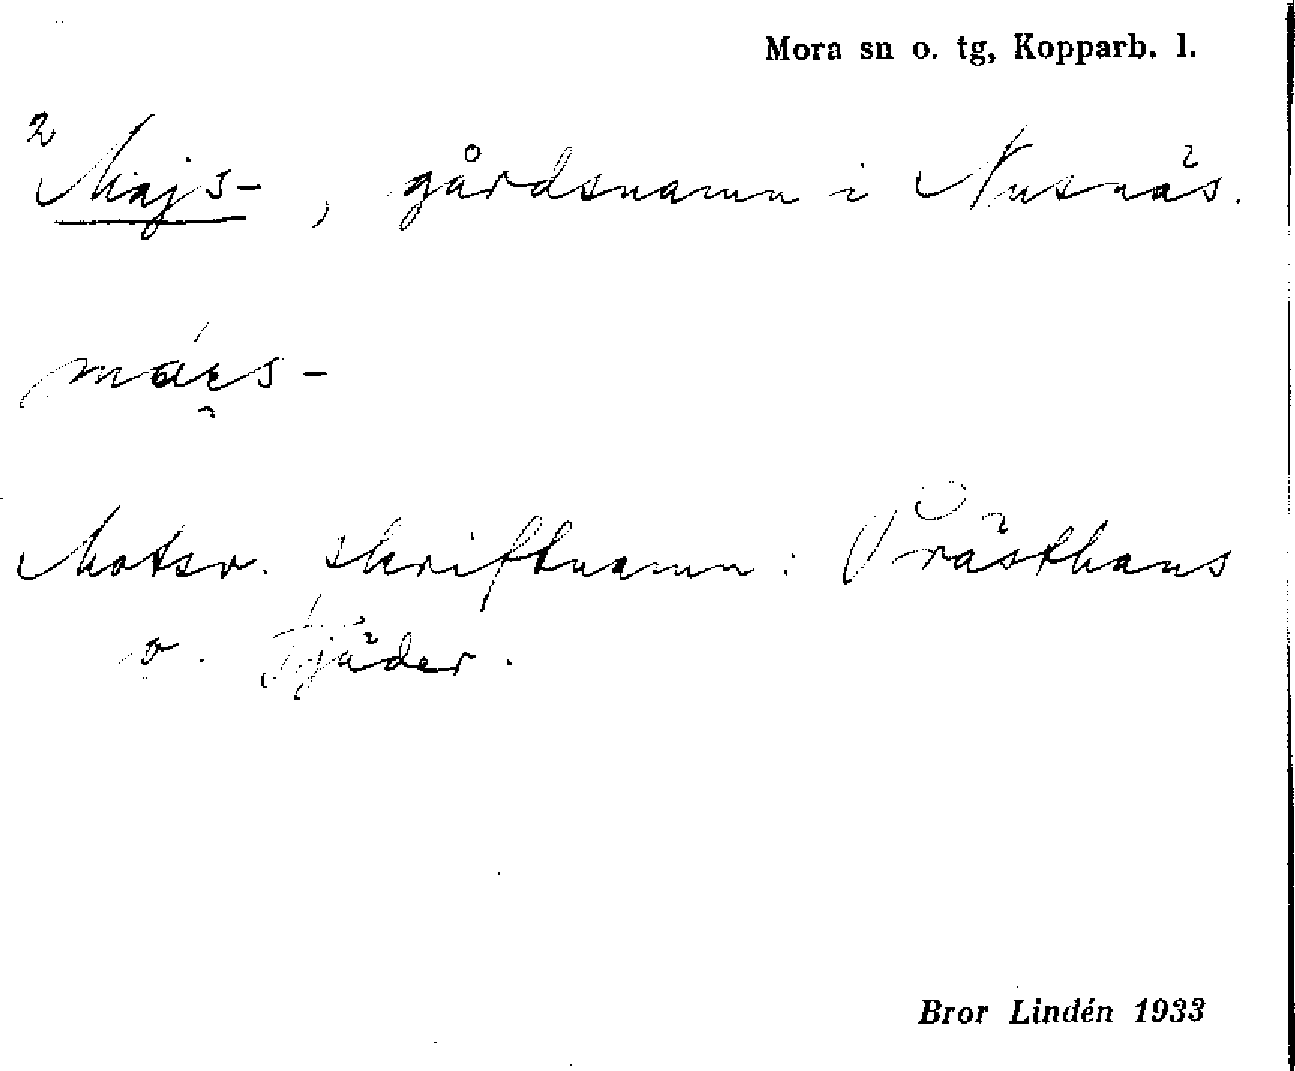 Mora sn o. tg, Kopparb. l.
2 Majs-, gårdsnamn i Nusnäs.
Motsv. skriftnamn: Prästhans
o. Tjäder.
Bror Lindén 1933